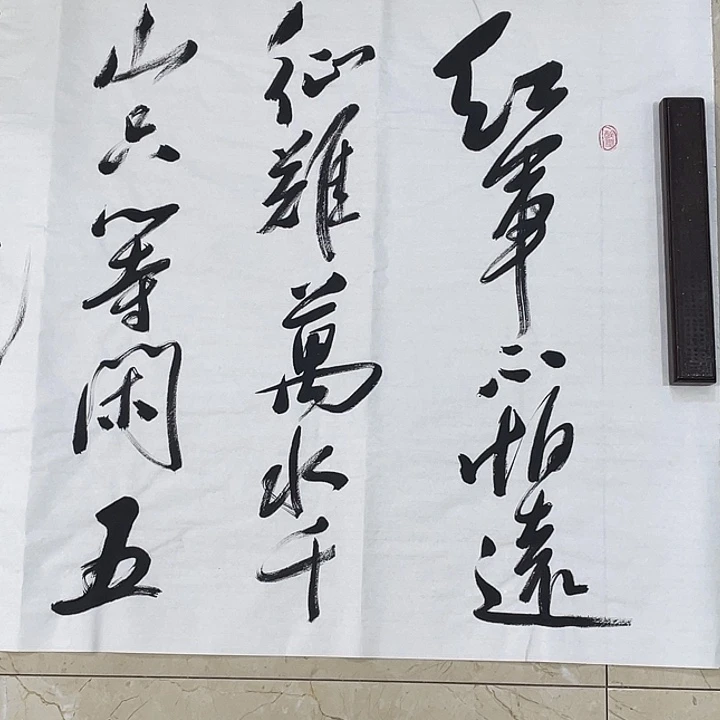 紅軍不怕遠
征難萬水千
山只等閑五